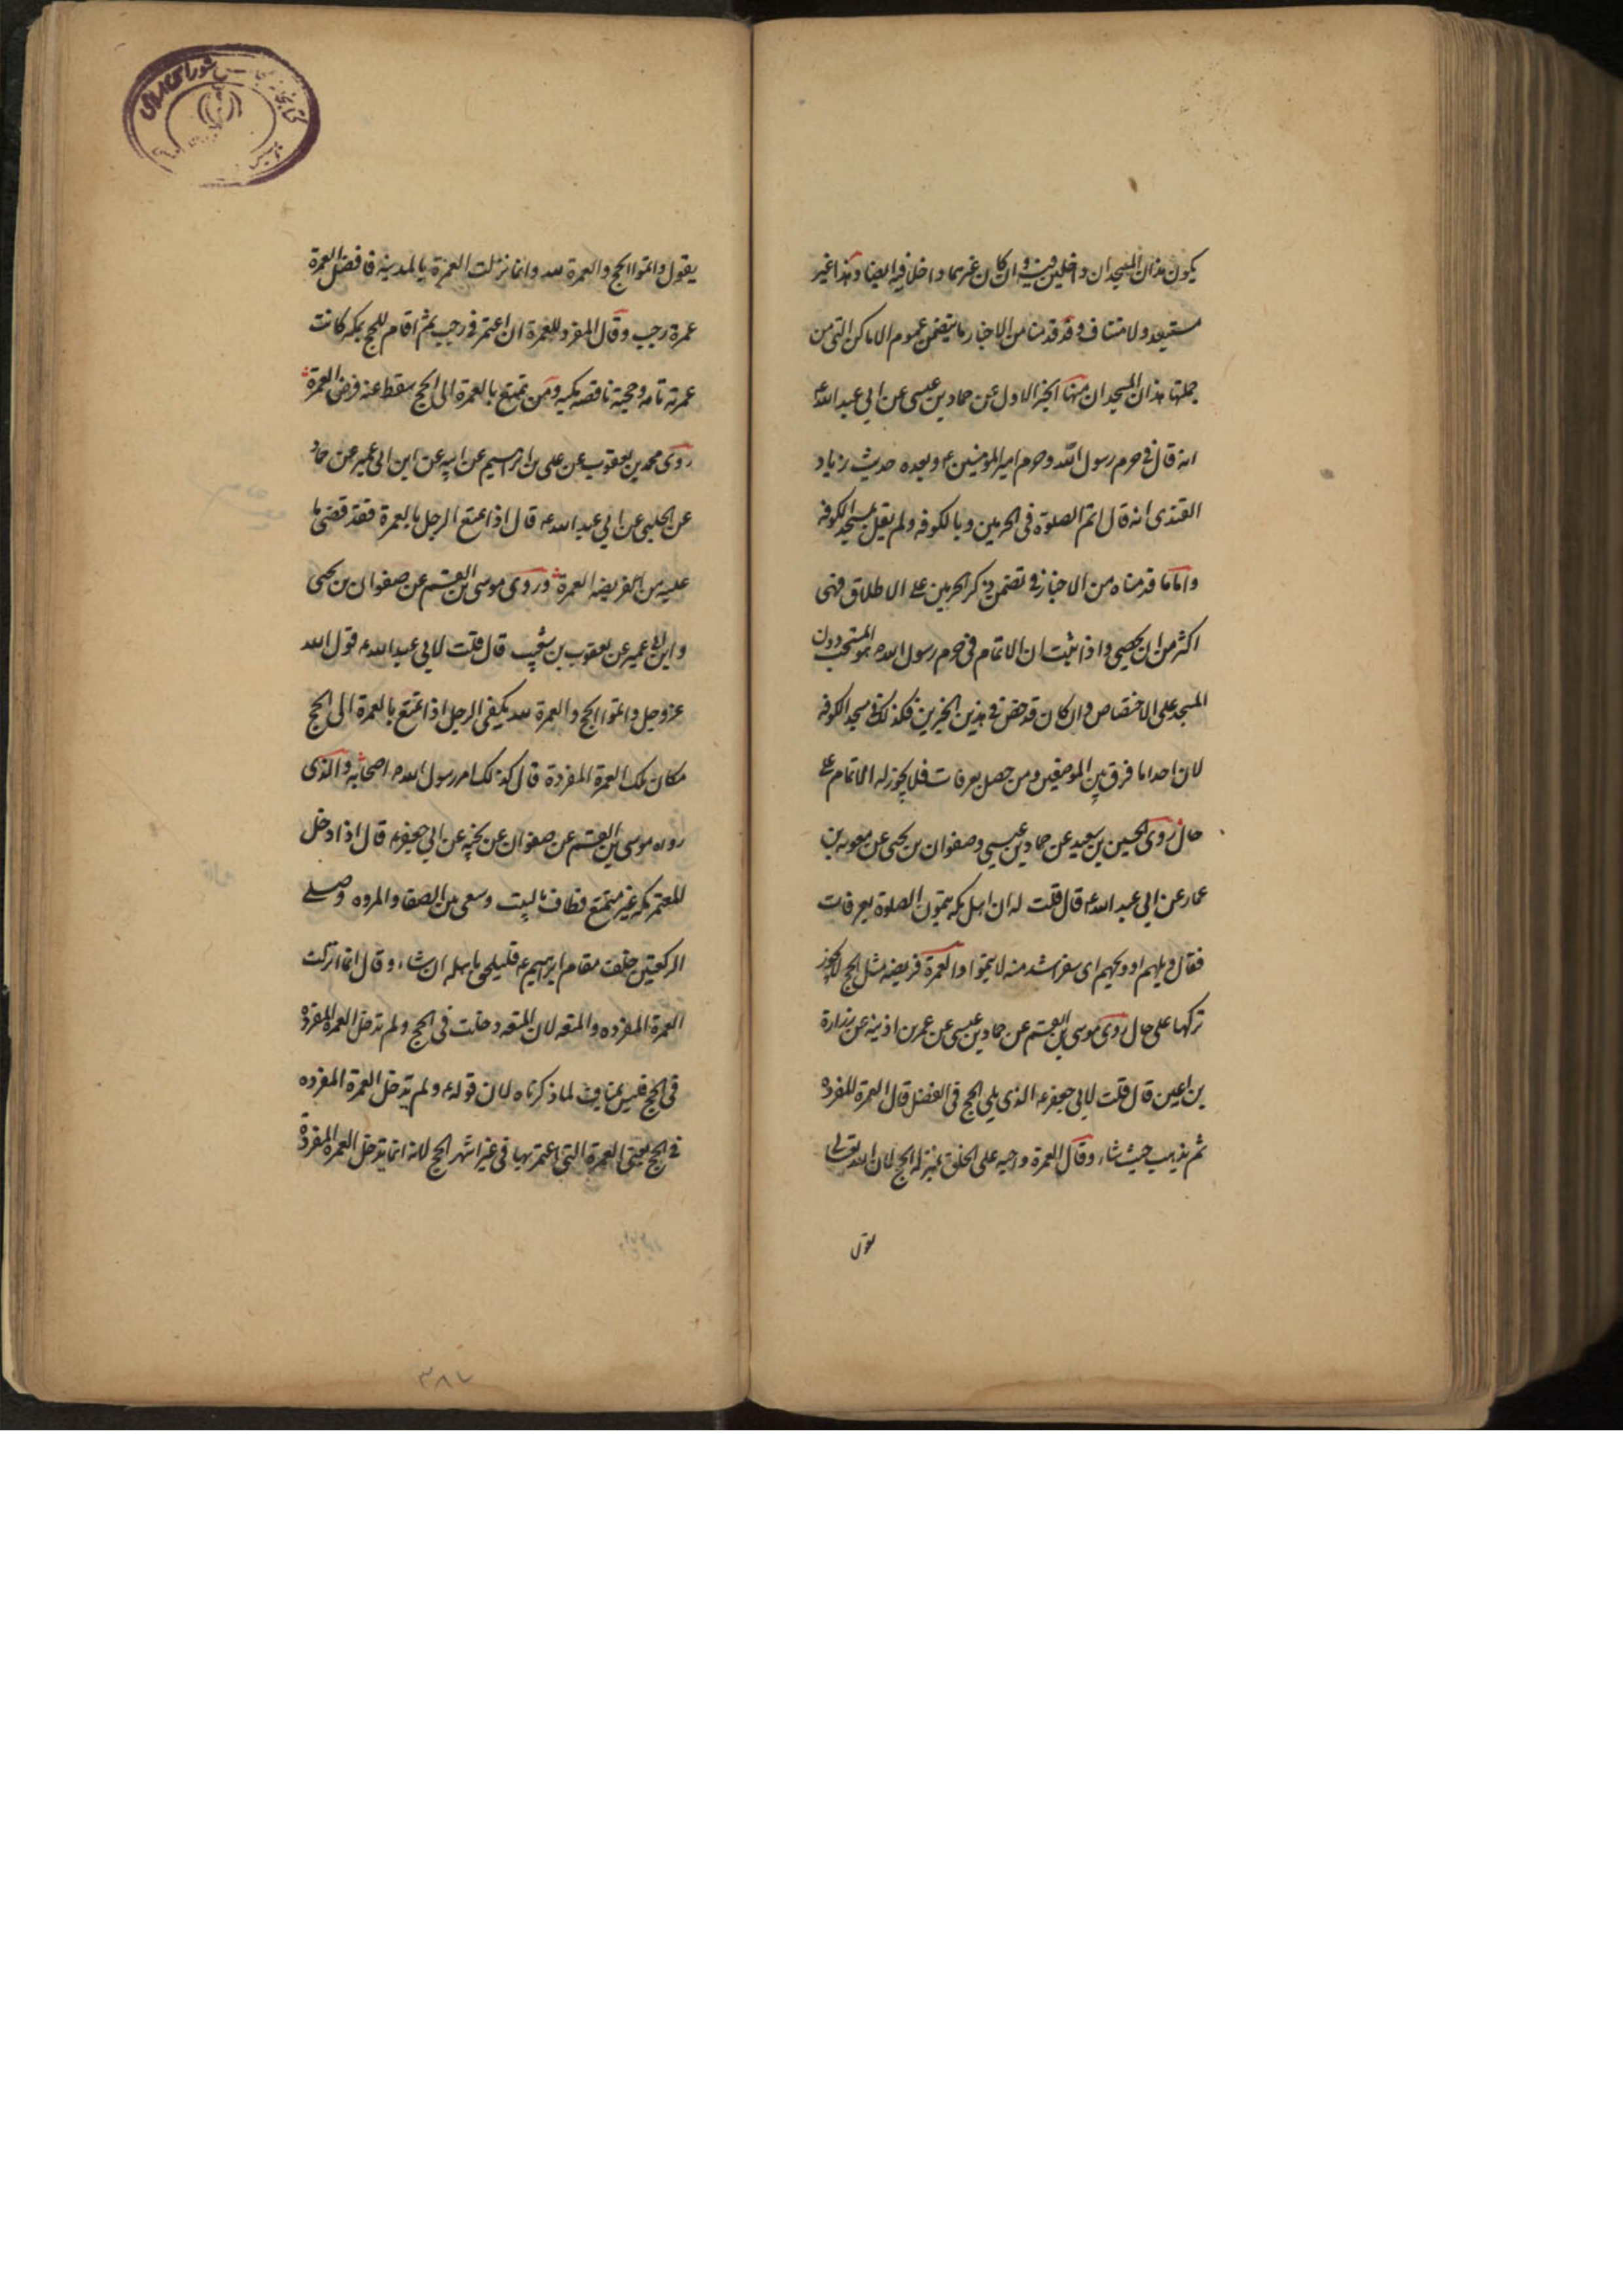 يكون هذان المسجدان داخلين فيه وان كان غيرهما داخلا فيه ايضا وهذا غير
مستبعد ولا متناف وقد قدمنا من الاخبار ما يتضمن عموم الاماكن التى من
جملتها هذان المسجدان منها الخبر الاول عن حماد بن عيسى عن ابي عبد الله ع
انه قال فى حرم رسول الله وحرم امير المؤمنين ع وبعده حديث زياد
القندى انه قال اتم الصلوة فى الحرمين وبالكوفه ولم يقل بمسجد الكوفه
واما ما قدمناه من الاخبار فى تضمن ذكر الحرمين على الاطلاق فهى
اكثر من ان يحصى واذا ثبت ان الاتمام فى حرم رسول الله ص هو المستحب دون
المسجد على الاختصاص وان كان قد خص فى هذين الخبرين فكذلك فى مسجد الكوفه
لان احدا ما فرق بين الموضعين ومن حصل بعرفات فلا يجوز له الاتمام على
حال روى الحسين بن سعيد عن حماد بن عيسى وصفوان بن يحيى عن معويه بن
عمار عن ابي عبد الله ع قال قلت له ان اهل مكه يتمون الصلوة بعرفات
فقال ويلهم او ويحهم اى سفر اشد منه لا يتموا والعمرة فريضه مثل الحج لا يجوز
تركها على حال روى موسى بن القسم عن حماد بن عيسى عن عمر بن اذينه عن زرارة
بن اعين قال قلت لابي جعفر ع الذى يلي الحج فى الفضل قال العمرة المفرده
ثم يذهب حيث شاء وقال العمرة واجبه على الخلق بمنزلة الحج لان الله تعالى
يقول
يقول واتموا الحج والعمرة لله وانما نزلت العمرة بالمدينه فافضل العمرة
عمرة رجب وقال المفرد للعمرة ان اعتمر فى رجب ثم اقام للحج بمكه كانت
عمرته تامه وحجته ناقصه مكيه ومن تمتع بالعمرة الى الحج سقط عنه فرض العمرة
روى محمد بن يعقوب عن على بن ابرهيم عن ابيه عن ابن ابى عمير عن حماد
عن الحلبى عن ابي عبد الله ع قال اذا تمتع الرجل بالعمرة فقد قضى ما
عليه من فريضه العمرة وروى موسى بن القسم عن صفوان بن يحيى
وابن ابى عمير عن يعقوب بن شعيب قال قلت لابي عبد الله ع قول الله
عز وجل واتموا الحج والعمرة لله يكفى الرجل اذا تمتع بالعمرة الى الحج
مكان تلك العمرة المفردة قال كذلك امر رسول الله ص اصحابه والذى
رواه موسى بن القسم عن صفوان عن نجيه عن ابي جعفر ع قال اذا دخل
المعتمر مكه غير متمتع فطاف بالبيت وسعى بين الصفا والمروه وصلى
الركعتين خلف مقام ابرهيم ع فليلحق باهله ان شاء وقال انما انزلت
العمرة المفرده والمتعه لان المتعه دخلت فى الحج ولم تدخل العمرة المفردة
فى الحج فليس بمناف لما ذكرناه لان قوله ع ولم تدخل العمرة المفرده
فى الحج يعنى العمرة التى اعتمر بها فى غير اشهر الحج لانه انما تدخل العمرة المفردة
٣٨٧